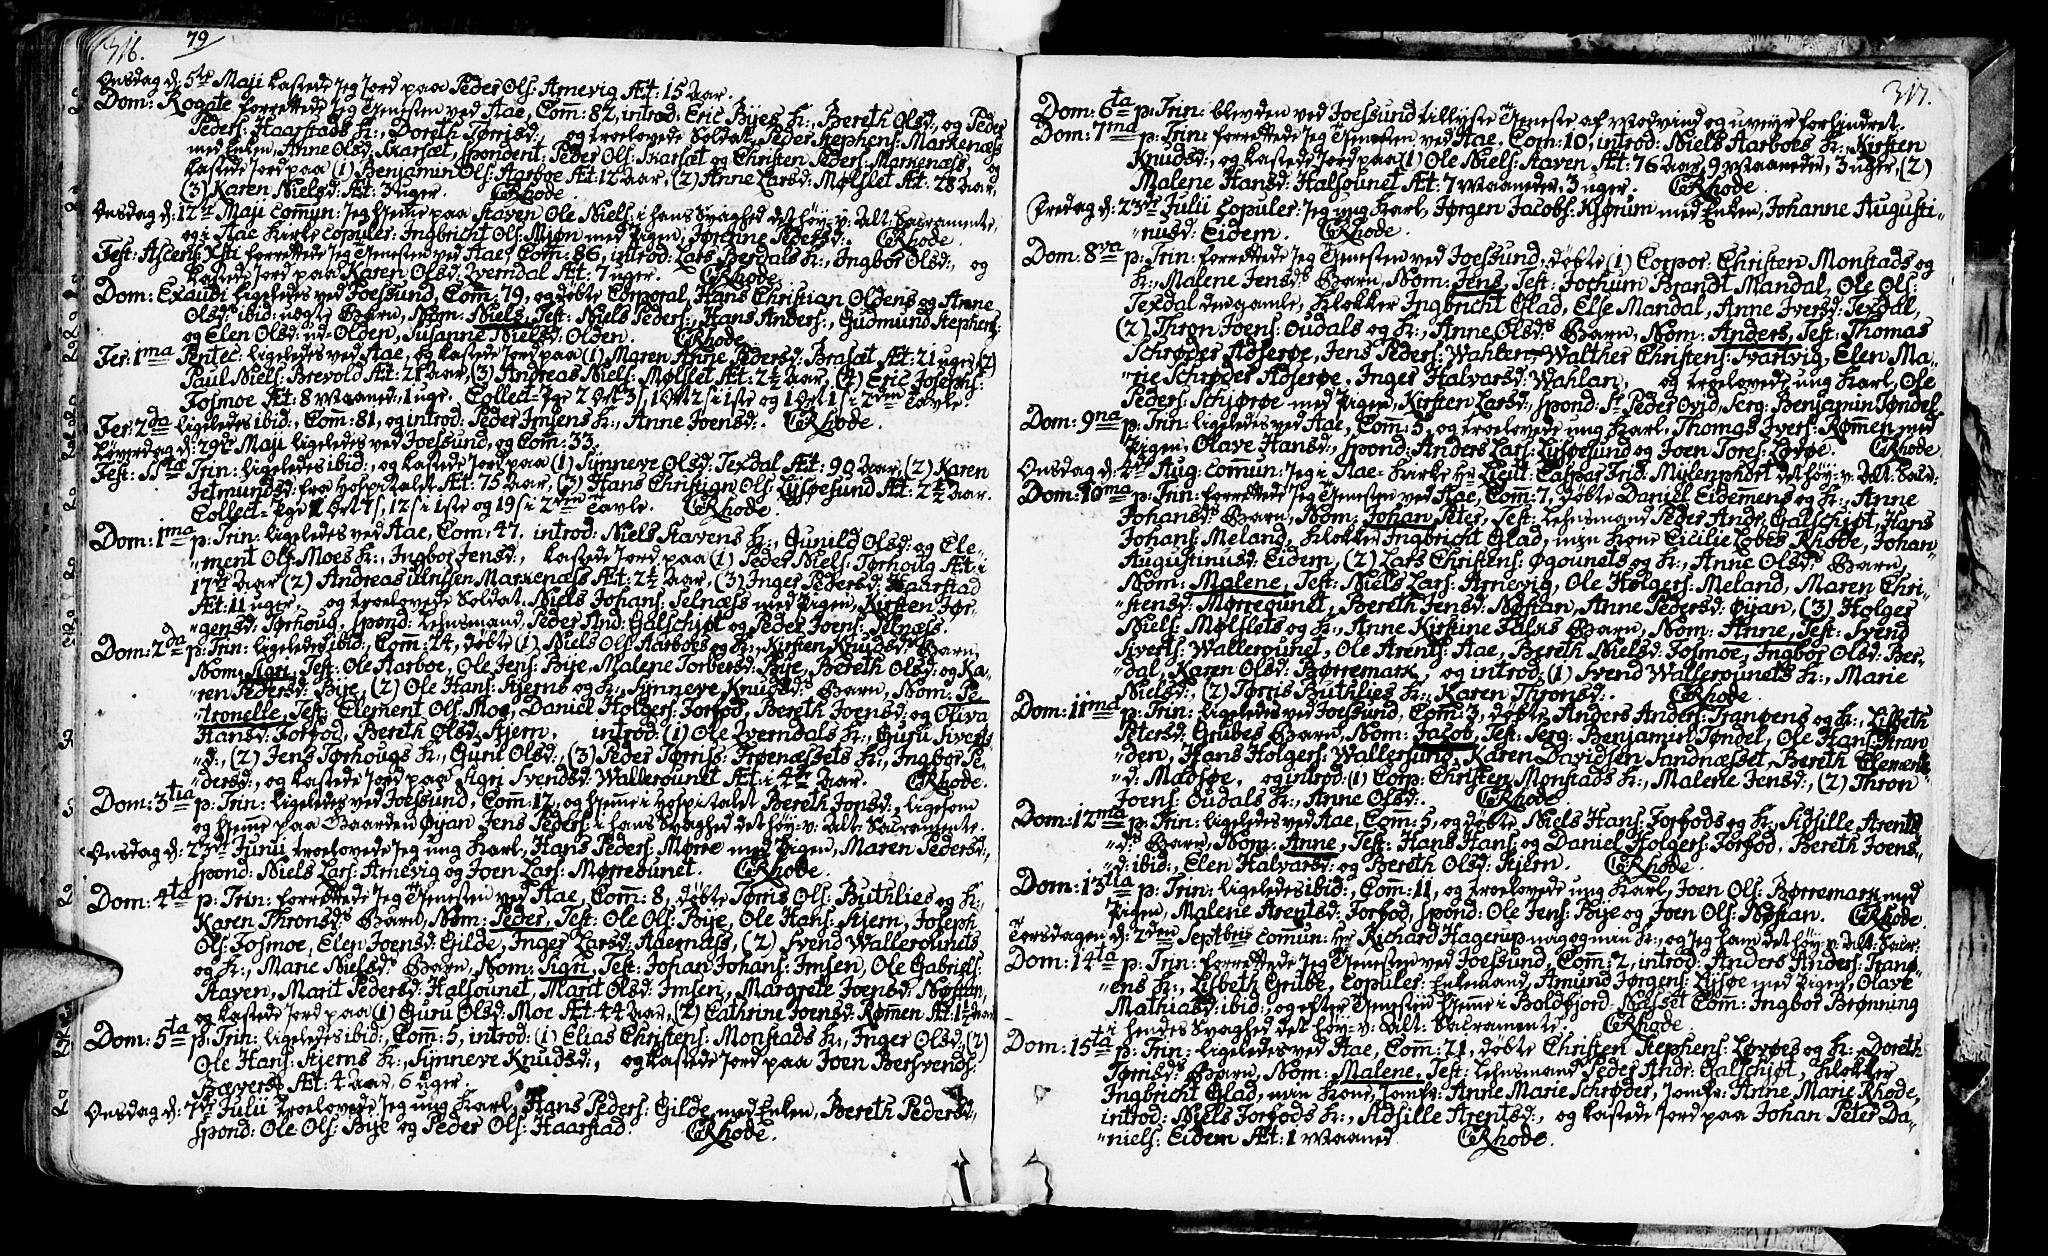 316. 79
Onsdag d: 5te Maji kastede Jeg Jord paa Peder Ols: Arnevig Æt: 15 Aar.
Dom: Rogate forrettede Jeg Tjenesten ved Aae, Com̄: 82, introd: Eric Byes H:, Bereth Olsd:, og Peder
Peders: Haarstads H:, Doreth Tørrisd:, og troelovede Soldat, Peder Stephens: Markenæss
med Enken, Anne Olsd: Skarsæt, spondent: Peder Ols: Skarsæt og Christen Peders: Markenæss, og
kastede Jord paa (1) Benjamin Ols: Aarboe Æt: 12 Aar, (2) Anne Larsd: Mølslet Æt: 28 Aar,
(3) Karen Nielsd: Æt: 3 uger. CRhode.
Onsdag d: 12te Maji com̄un: Jeg hjem̄e paa Staven Ole Niels: i hans Svaghed det høy-v: Alt: Sacramente,
og i Aae Kirke copuler: Ingbricht Ols: Mjøn med Pigen, Jørenne Pedersd:. CRhode.
Fest: Ascens: Xsti forrettede Jeg Tjenesten ved Aae, Com̄: 86, introd: Lars Berdals H:, Ingbor Olsd:, og
kastede Jord paa Karen Olsd: Qverndal Æt: 7 uger. CRhode.
Dom: Exaudi ligeledes ved Joessund, Com̄: 79, og døbte Corporal, Hans Christian Oldens og Anne
Olsds ibid: uægte Barn, Nom: Niels, Test: Niels Peders:, Hans Anders:, Gudmund Stephens:
og Elen Olsd: ud-Olden, Susanne Nielsd: Olden. CRhode.
Fer: 1ma Pentec: ligeledes ved Aae, og kastede Jord paa (1) Maren Anne Pedersd: Brasæt Æt: 21 uger, (2)
Paul Niels: Brevold Æt: 21 Aar, (3) Andreas Niels: Mølslet Æt: 2½ Aar, (4) Eric Josephs:
Fosmoe Æt: 8 Maaned: 1 uge. Collect-Pge 2 Ort 3 s, 1 Ort 2 s i 1ste og 1 Ort 1 s i 2den Tavle.
Fer: 2da ligeledes ibid:, Com̄: 81, og introd: Peder Imsens H:, Anne Joensd:. CRhode.
Løverdag d: 29de Maji ligeledes ved Joessund, og Com̄: 33.
Fest: SSta Trin: ligeledes ibid:, og kastede Jord paa (1) Synneve Olsd: Texdal Æt: 90 Aar, (2) Karen
Jetmundsd: fra Hospitalet Æt: 75 Aar, (3) Hans Christian Ols: Lysøesund Æt: 2½ Aar.
Collect-Pge 1 Ort 7 s, 12 s i 1ste og 19 s i 2den Tavle. CRhode.
Dom: 1ma p: Trin: ligeledes ved Aae, Com: 47, introd: Niels Stavens H:, Gunild Olsd: og Ele-
-ment Ols: Moes H:, Ingbor Jensd:, kastede Jord paa (1) Peder Niels: Tørhoug Æt: i
17de Aar (2) Andreas Unssen Markenæss Æt: 2½ Aar, (3) Inger Pedersd: Haarstad
Æt: 11 uger, og troelovede Soldat, Niels Johans: Selnæss med Pigen, Kirsten Jør-
-gensd: Tørhoug, spond: Lehnsmand, Peder And: Galschjøt og Peder Joens: Selnæss.
Dom: 2da p: Trin: ligeledes ibid:, Com̄: 24, døbte (1) Niels Ols: Aarboes og H:, Kirsten Knudsds Barn,
Nom: Sigri, Test: Ole Aarboe, Ole Jens: Bye, Malene Torbersd: Bye, Bereth Olsd: og Ka-
-ren Pedersd: Bye, (2) Ole Hans: Stjerns og H:, Synneve Knudsds Barn, Nom: Pe-
-tronelle, Test: Clement Ols: Moe, Daniel Holgers: Forfod, Bereth Joensd: og Oliva
Hansd: Forfod, Bereth Olsd: Stjern, introd: (1) Ole Qverndals H:, Guru Siverts-
-d:, (2) Jens Tørhougs H:, Guril Olsd:, (3) Peder Tørris: Frøenæssets H:, Ingbor Pe-
-dersd:, og kastede Jord paa Sigri Svendsd: Wallersunet Æt: i 4de Aar. CRhode.
Dom: 3tia p: Trin: ligeledes ved Joessund, Com̄: 12, og hjem̄e i Hospitalet Bereth Jonsd:, ligesom
og hjem̄e paa Gaarden Øyan Jens Peders: i hans Svaghed det høy-v: Alt: Sacramente.
Onsdag d: 23de Junii troelovede Jeg ung Karl, Hans Peders: Mørre med Pigen, Maren Pedersd:,
spond: Niels Lars: Arnevig og Joen Lars: Mørreounet. CRhode.
Dom: 4ta p: Trin: forrettede Jeg Tjenesten ved Aae, Com̄: 8, døbte Tørris Ols: Buthlies og H:,
Karen Thronsds Barn, Nom: Peder, Test: Ole Ols: Bye, Ole Hans: Stjern, Joseph
Ols: Fosmoe, Elen Joensd: Gilde, Inger Larsd: Aaernæss, (2) Svend Wallersounets
og H:, Marie Nielsds Barn, Nom: Sigri, Test: Johan Johans: Imsen, Ole Gabriels:
Staven, Marit Pedersd: Halsounet, Marit Olsd: Imsen, Margrete Joensd: Nøstan,
og kastede Jord paa (1) Guru Olsd: Moe Æt: 44 Aar, (2) Cathrine Joensd: Røm̄en Æt: 1½ Aar
Dom: 5ta p: Trin: ligeledes ibid:, Com̄: 5, introd: (1) Elias Christens: Monstads H:, Inger Olsd: (2)
Ole Hans: Stjerns H:, Synneve Knudsd:, og kastede Jord paa Joen Bersvends:
Sævers Æt: 4 Aar, 6 uger.
Onsdag d: 7de Julii troelovede Jeg ung Karl, Hans Peders: Gilde med Enken, Bereth Pedersd:
spond: Ole Ols: Bye og Peder Ols: Haarstad. CRhode.
317.
Dom: 6ta p: Trin: blev den ved Joessund tillyste Tjeneste af Modvind og uveyr forhindret.
Dom: 7ma p: Trin: forrettede Jeg Tjenesten ved Aae, Com: 10, introd: Niels Aarboes H:, Kirsten
Knudsd:, og kastede Jord paa (1) Ole Niels: Staven Æt: 76 Aar, 9 Maaneder, 3 uger, (2)
Malene Hansd: Halsounet Æt: 7 Maaneder, 3 uger. CRhode.
Fredag d: 23de Julii copuler: Jeg ung Karl, Jørgen Jacobs: Kjørum med Enken, Johanne Augusti-
-nusd: Eidem. CRhode.
Dom: 8va p: Trin: forrettede Jeg Tjenesten ved Joessund, døbte (1) Corpor: Christen Monstads og
H:, Malene Jensds Barn, Nom: Jens, Test: Jochum Brandt Mandal, Ole Ols:
Texdal den gamle, Klokker Ingbricht Glad, Else Mandal, Anne Iversd: Texdal,
(2) Thron Joens: Oudals og H:, Anne Olsds Barn, Nom: Anders, Test: Thomas
Schrøder Adserøe, Jens Peders: Wahlen, Walther Christens: Svartvig, Elen Ma-
-rie Schrøder Adserøe, Inger Halvarsd: Wahlan, og troelovede ung Karl, Ole
Peders: Schjørøe med Pigen, Kirsten Larsd:, spond: Sr Peder Ovid, Serg: Benjamin Tøndel.
Dom: 9na p: Trin: ligeledes ved Aae, Com: 5, og troelovede ung Karl, Thomas Ivers: Røm̄en med
Pigen, Olave Hansd:, spond: Anders Lars: Lysøesund og Joen Tores: Lørøe. CRhode.
Onsdag d: 4de Aug: com̄un: Jeg i Aae-Kirke Hr Lieut: Caspar Frid: Mylenphort det høy-v: Alt: Sacr:
Dom: 10ma p: Trin: forrettede Jeg Tjenesten ved Aae, Com: 7, døbte Daniel Eidemens og H:, Anne
Johansds Barn, Nom: Johan Peter, Test: Lehnsmand Peder Andr: Galschjøt, Hans
Johans: Meland, Klokker Ingbricht Glad, min Kone Cicilie Lobes Rhode, Johan-
Augustinusd: Eidem, (2) Lars Christens: Øgounets og H:, Anne Olsds Barn,
Nom: Malene, Test: Niels Lars: Arnevig, Ole Holgers: Meland, Maren Chri-
-stensd: Mørreounet, Bereth Jensd: Nøstan, Anne Pedersd: Øyan, (3) Holger
Niels: Mølslets og H:, Anne Kirstine Falks Barn, Nom: Anne, Test: Svend
Siverts: Wallersounet, Ole Arents: Aae, Bereth Nielsd: Fosmoe, Ingbor Olsd: Ber-
-dal, Karen Olsd: Børremark, og introd: (1) Svend Wallersounets H:, Marie
Nielsd:, (2) Tørris Buthlies H:, Karen Thronsd:. CRhode.
Dom: 11ma p: Trin: ligeledes ved Joessund, Com: 3, døbte Anders Anders: Tranøens og H:, Lisbeth
Petersd: Grubes Barn, Nom: Jacob, Test: Serg: Benjamin Tøndel, Ole Hans: Stran-
-den, Hans Holgers: Wallersund, Karen Davidsen Sandnæsset, Bereth Clements-
-d: Madsøe, og introd: (1) Corp: Christen Monstads H:, Malene Jensd:, (2) Thron
Joens: Oudals H:, Anne Olsd:. CRhode.
Dom: 12ma p: Trin: ligeledes ved Aae, Com: 5, og døbte Niels Hans: Forfods og H:, Sidsille Arents-
-ds Barn, Nom: Anne, Test: Hans Hans: og Daniel Holgers: Forfod, Bereth Joens-
-d: ibid:, Elen Halvarsd: og Bereth Olsd: Stjern. CRhode.
Dom: 13tia p: Trin: ligeledes ibid:, Com̄: 11, og troelovede ung Karl, Joen Ols: Børremark med
Pigen, Malene Arentsd: Forfod, spond: Ole Jens: Bye og Joen Ols: Nøstan. CRhode.
Torsdagen d: 2den Septbris com̄un: Hr Richard Hagerup mig og min H:, og Jeg ham det høy-v: Alt: Sacr:
Dom: 14ta p: Trin: forrettede Jeg Tjenesten ved Joessund, Com̄: 2, introd: Anders Anders: Tranø-
-ens H:, Lisbeth Grube, copuler: Enkemand, Amund Jørgens: Lysøe med Pigen, Olave
Mathiasd: ibid:, og efter Tjenesten hjem̄e i Boldfjord-Næsset Com̄: Ingbor Brønning
i hendes Svaghed det høy-v: Alt: Sacramente. CRhode.
Dom: 15ta p: Trin: ligeledes ved Aae, Com̄: 21, døbte Christen Stephens: Lørøes og H:, Doreth
Tørrisds Barn, Nom: Malene, Test: Lehnsmand Peder Andr: Galschjøt, Klokker
Ingbricht Glad, min Kone, Jomfr: Anne Marie Schrøder, Jomfr: Anne Marie Rhode,
introd: Niels Forfods H:, Sidsille Arentsd:, og kastede Jord paa Johan Peter Da-
-niels: Eidem Æt: 1 Maaned. CRhode.